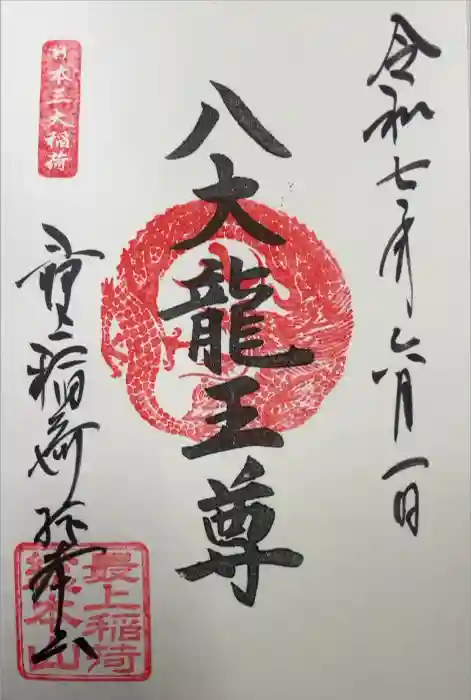 令和七年六月一日
八大龍王尊
日本三大稲荷
最上稲荷総本山
最上稲荷
総本山